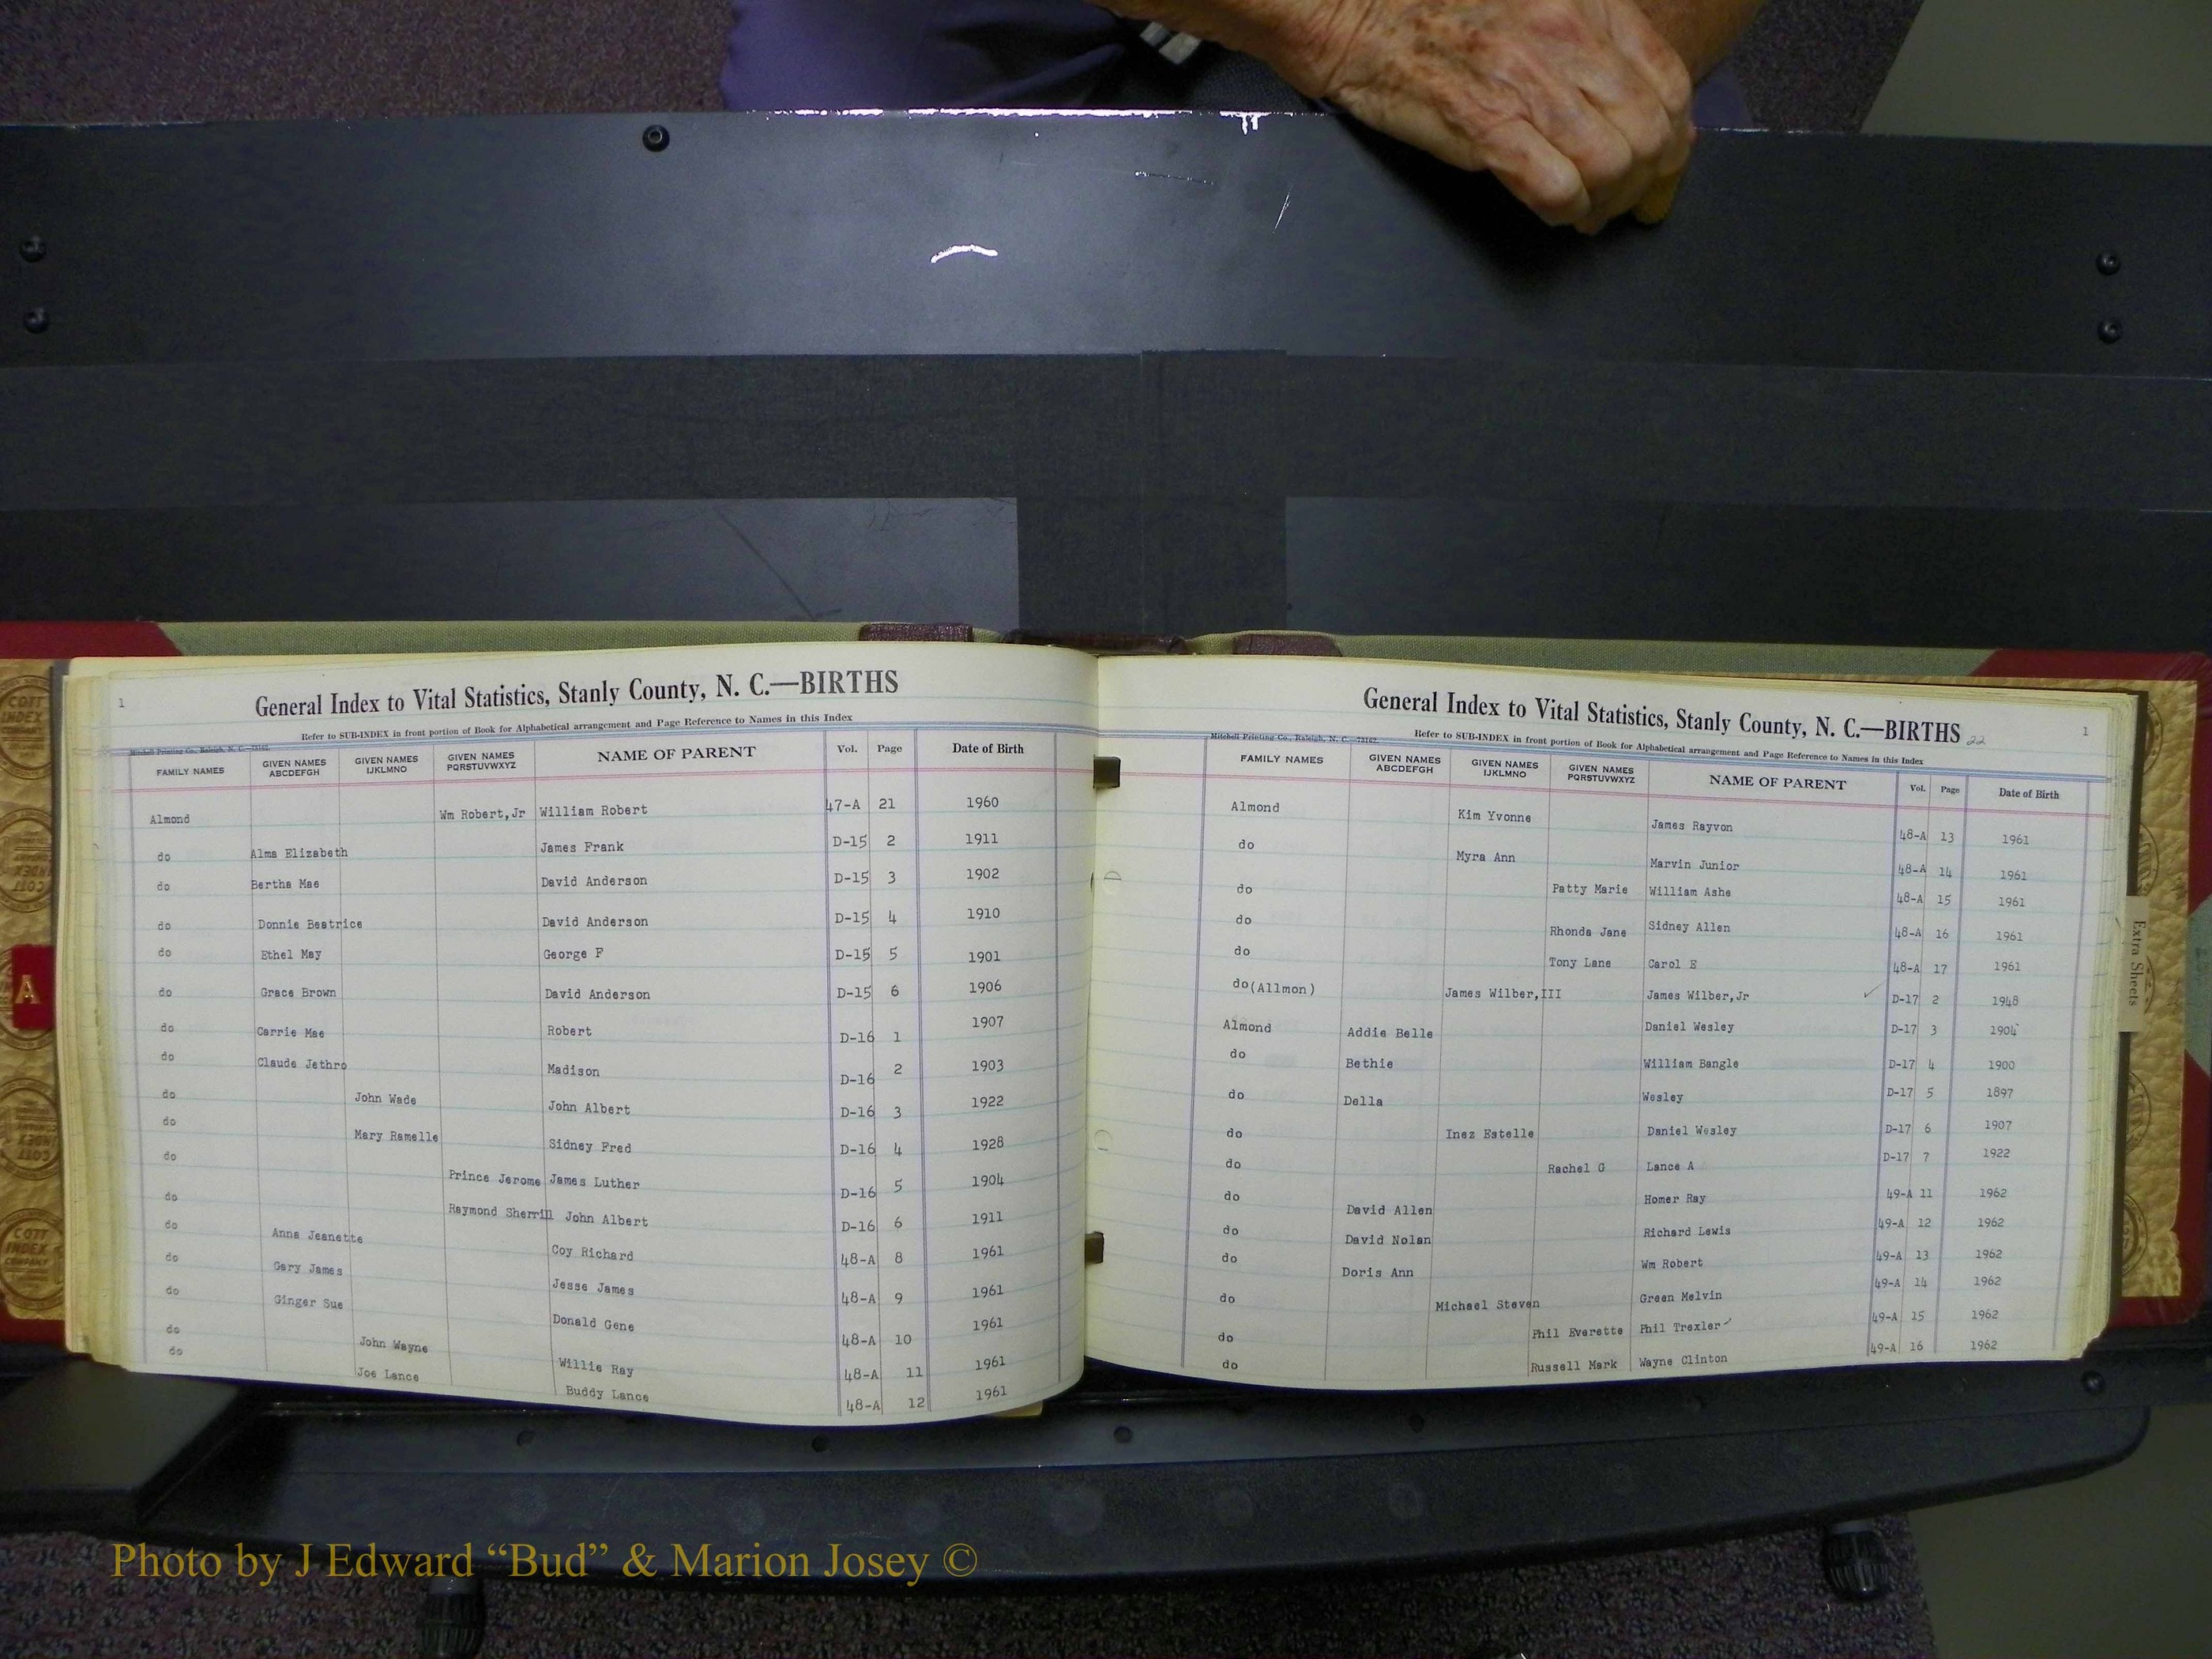 1
General Index to Vital Statistics, Stanly County, N. C.—BIRTHS
Refer to SUB-INDEX in front portion of Book for Alphabetical arrangement and Page Reference to Names in this Index
Mitchell Printing Co., Raleigh, N. C.
FAMILY NAMES GIVEN NAMES ABCDEFGH GIVEN NAMES IJKLMNO GIVEN NAMES PQRSTUVWXYZ NAME OF PARENT Vol. Page Date of Birth
Almond Wm Robert,Jr William Robert 47-A 21 1960
do Alma Elizabeth James Frank D-15 2 1911
do Bertha Mae David Anderson D-15 3 1902
do Donnie Beatrice David Anderson D-15 4 1910
do Ethel May George F D-15 5 1901
do Grace Brown David Anderson D-15 6 1906
do Carrie Mae Robert D-16 1 1907
do Claude Jethro Madison D-16 2 1903
do John Wade John Albert D-16 3 1922
do Mary Ramelle Sidney Fred D-16 4 1928
do Prince Jerome James Luther D-16 5 1904
do Raymond Sherrill John Albert D-16 6 1911
do Anna Jeanette Coy Richard 48-A 8 1961
do Gary James Jesse James 48-A 9 1961
do Ginger Sue Donald Gene 48-A 10 1961
do John Wayne Willie Ray 48-A 11 1961
do Joe Lance Buddy Lance 48-A 12 1961
General Index to Vital Statistics, Stanly County, N. C.—BIRTHS 22
1
Refer to SUB-INDEX in front portion of Book for Alphabetical arrangement and Page Reference to Names in this Index
Mitchell Printing Co., Raleigh, N. C.
FAMILY NAMES GIVEN NAMES ABCDEFGH GIVEN NAMES IJKLMNO GIVEN NAMES PQRSTUVWXYZ NAME OF PARENT Vol. Page Date of Birth
Almond Kim Yvonne James Rayvon 48-A 13 1961
do Myra Ann Marvin Junior 48-A 14 1961
do Patty Marie William Ashe 48-A 15 1961
do Rhonda Jane Sidney Allen 48-A 16 1961
do Tony Lane Carol E 48-A 17 1961
do(Allmon) James Wilber,III James Wilber,Jr D-17 2 1948
Almond Addie Belle Daniel Wesley D-17 3 1904
do Bethie William Bangle D-17 4 1900
do Della Wesley D-17 5 1897
do Inez Estelle Daniel Wesley D-17 6 1907
do Rachel G Lance A D-17 7 1922
do David Allen Homer Ray 49-A 11 1962
do David Nolan Richard Lewis 49-A 12 1962
do Doris Ann Wm Robert 49-A 13 1962
do Michael Steven Green Melvin 49-A 14 1962
do Phil Everette Phil Trexler 49-A 15 1962
do Russell Mark Wayne Clinton 49-A 16 1962
A
Extra Sheets
COTT INDEX COMPANY
Photo by J Edward “Bud” & Marion Josey ©